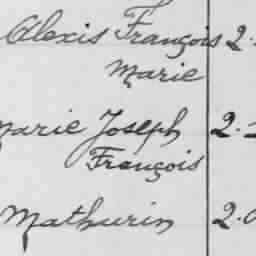 Alexis François 2.
Marie
Marie Joseph 2.
François
Mathurin 2.0